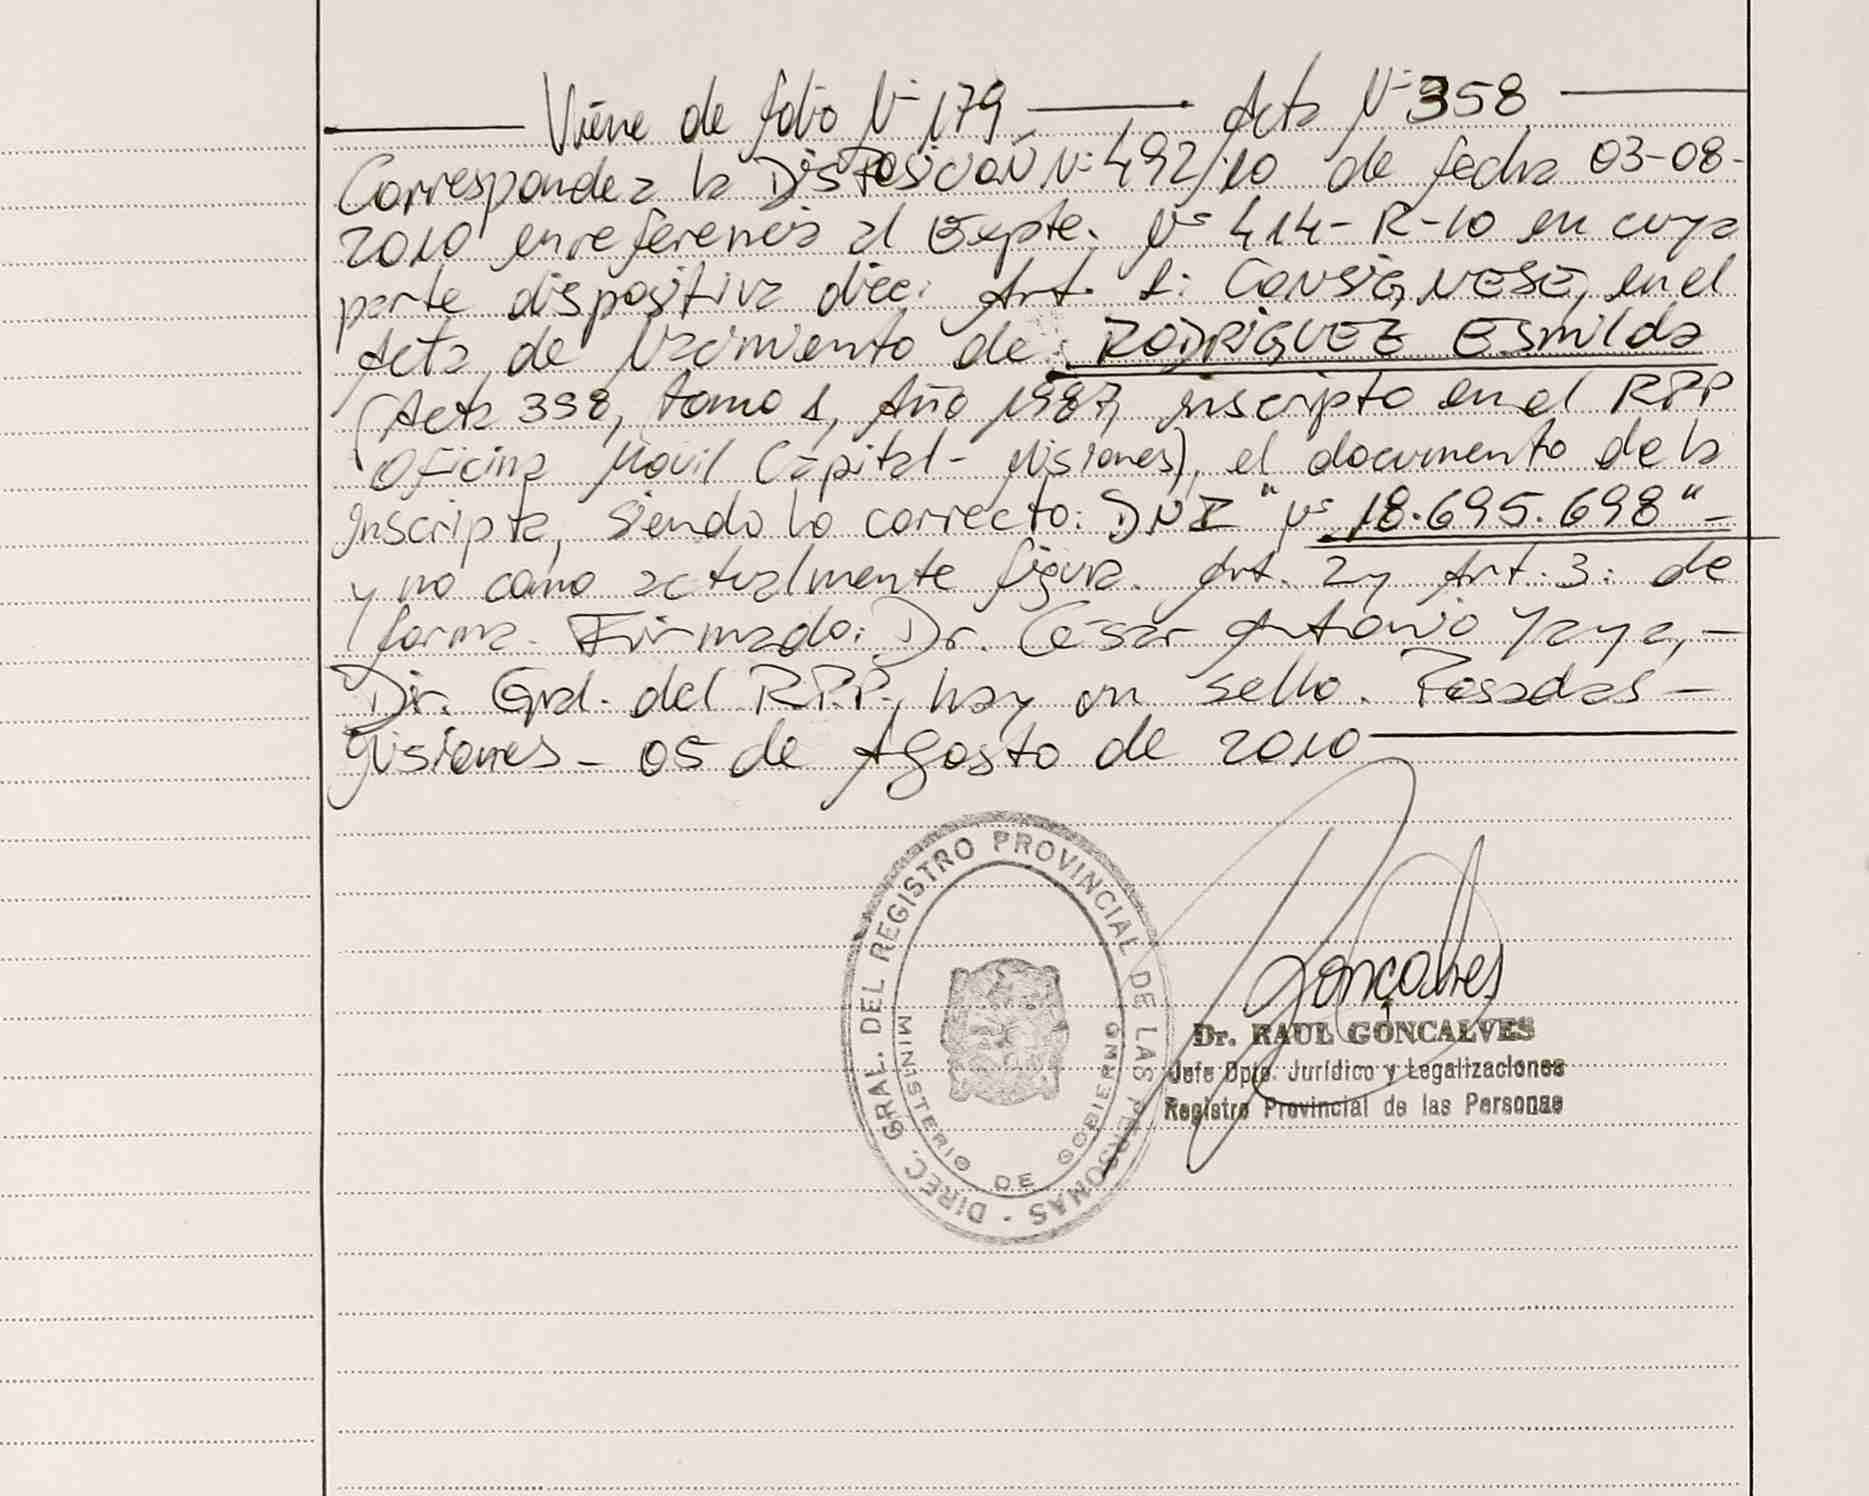 Viene de folio Nº 179 Acta Nº 358
Corresponde a la DISPOSICIÓN Nº 492/10 de fecha 03-08-
2010 en referencia al Expte. Nº 414-R-10 en cuya
parte dispositiva dice: Art. 1: CONSIGNESE, en el
Acta de Nacimiento de: RODRIGUEZ Esmilda
(Acta 358, tomo 1, Año 1987, inscripto en el RPP
Oficina Movil Capital - Misiones), el documento de la
inscripta, siendo lo correcto: DNI "Nº 18.695.698" -
y no como actualmente figura. Art. 2 y Art. 3: de
forma. Firmado: Dr. César Antonio Yaya, -
Dir. Gral. del RPP., hay un sello. Posadas -
Misiones - 05 de Agosto de 2010
DIREC. GRAL. DEL REGISTRO PROVINCIAL DE LAS PERSONAS -
MINISTERIO DE GOBIERNO
Goncalves
Dr. RAUL GONCALVES
Jefe Dpto. Jurídico y Legalizaciones
Registro Provincial de las Personas